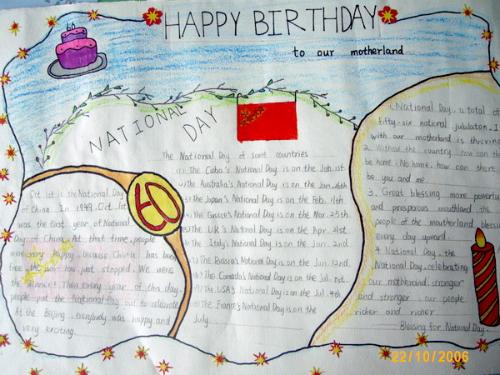 HAPPY BIRTHDAY
to our motherland
NATIONAL DAY
60
The National Day of some countries
The Cuba's National Day is on the Jan. 1st
The Australia's National Day is on the Jan. 26th
The Japan's National Day is on the Feb. 11th
The Greece's National Day is on the Mar. 25th
The UK's National Day is on the Apr. 21st
The Italy's National Day is on the Jun. 2nd
The Russia's National Day is on the Jun. 12th
The Canada's National Day is on the Jul.
The USA's National Day is on the Jul. 4th
The National Day is on the
July
Oct 1st is the National Day
of China. In 1949. Oct 1st
was the first year of National
Day in China. At that time, people
happy because China has been
you just stopped. We were
Then every year of this day,
people the National Day out to celebrate
At the Beijing. everybody was happy and
very exciting.
1. National Day. a total of
fifty-six national jubilation
with our motherland is thriving
2. Without the country, how can the
be home. No home, how can there
be you and me
3. Great blessing more powerful
and prosperous motherland the
people of the motherland blessing
every day upward
4. National Day. the
National Day, celebrating
our motherland stronger
and stronger. our people
richer and richer
Blessing for National Day.
22/10/2006